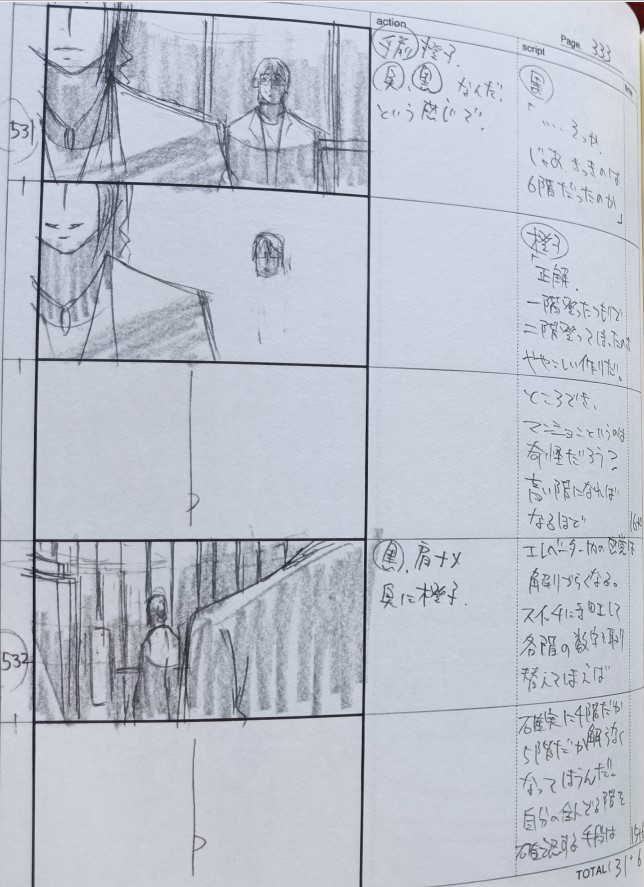 action
script
Page. 333
531
手前 橙子.
奥、黒 なんだ.
という感じで.
黒
「…. そっか.
じゃあ、さっきのは
6階だったのか」
橙子
「正解.
一階登ったつもりで
二階登ってしまったのさ
ややこしい作りだ。
ところでさ、
マンションというのは
奇怪だろう?
高い階になれば
なるほど
532
黒、肩ナメ
奥に橙子.
エレベーター内の
解りづらくなる。
スイッチに手回して
各階の数字を取り
替えてしまえば
確実に4階だか
5階だか解らなく
なってしまうんだ。
自分の住んでる階を
確認する手段は
TOTAL(31+6